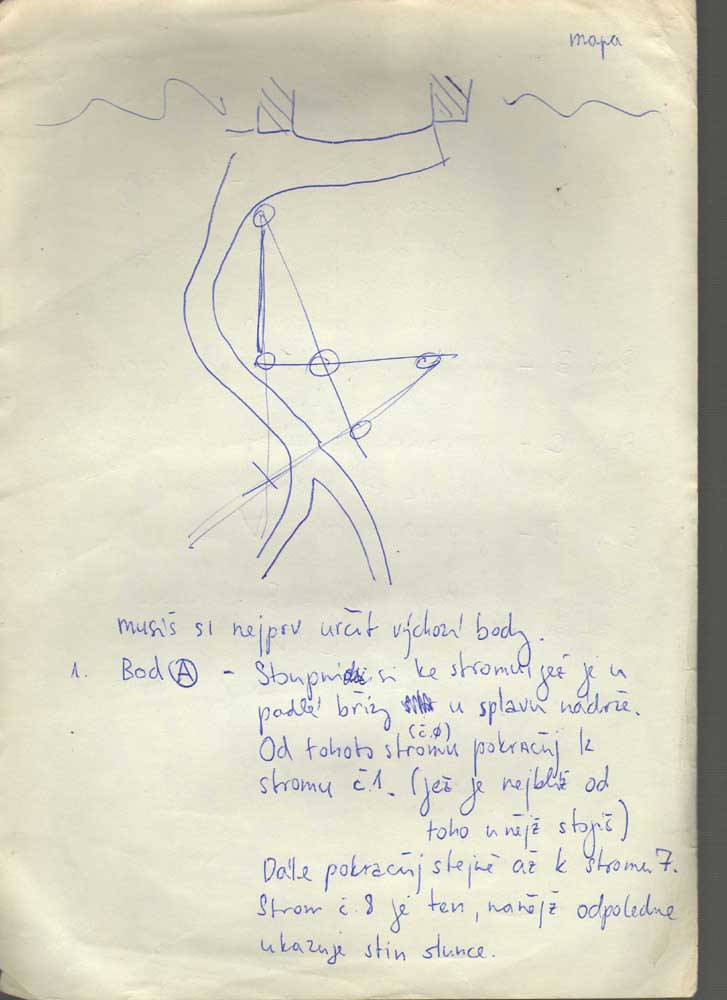 mapa
musíš si nejprv určit výchozí body.
1. Bod A - Stoupni si ke stromu jež je u
padlé břízy u splavu nádrže.
(č.0)
Od tohoto stromu pokračuj k
stromu č.1. (jež je nejblíž od
toho u nějž stojíš)
Dále pokračuj stejně až k stromu 7.
Strom č.8 je ten, na nějž odpoledne
ukazuje stín slunce.